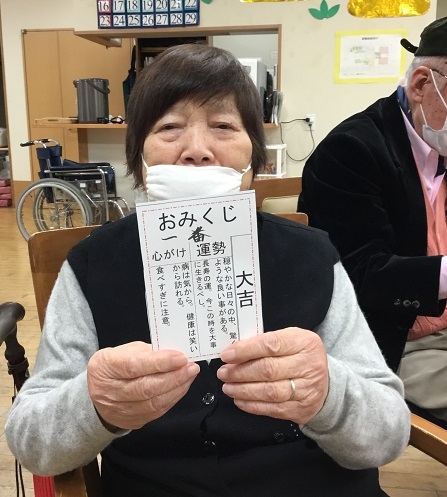 おみくじ
一番
大吉
運勢
穏やかな日々の中、驚く
ような良い事がある。
長寿の運、今この時を大事
に生きるべし。
心がけ
病は気から。健康は笑い
から訪れる。
食べすぎに注意。
16 17 18 19 20 21 22
23 24 25 26 27 28 29